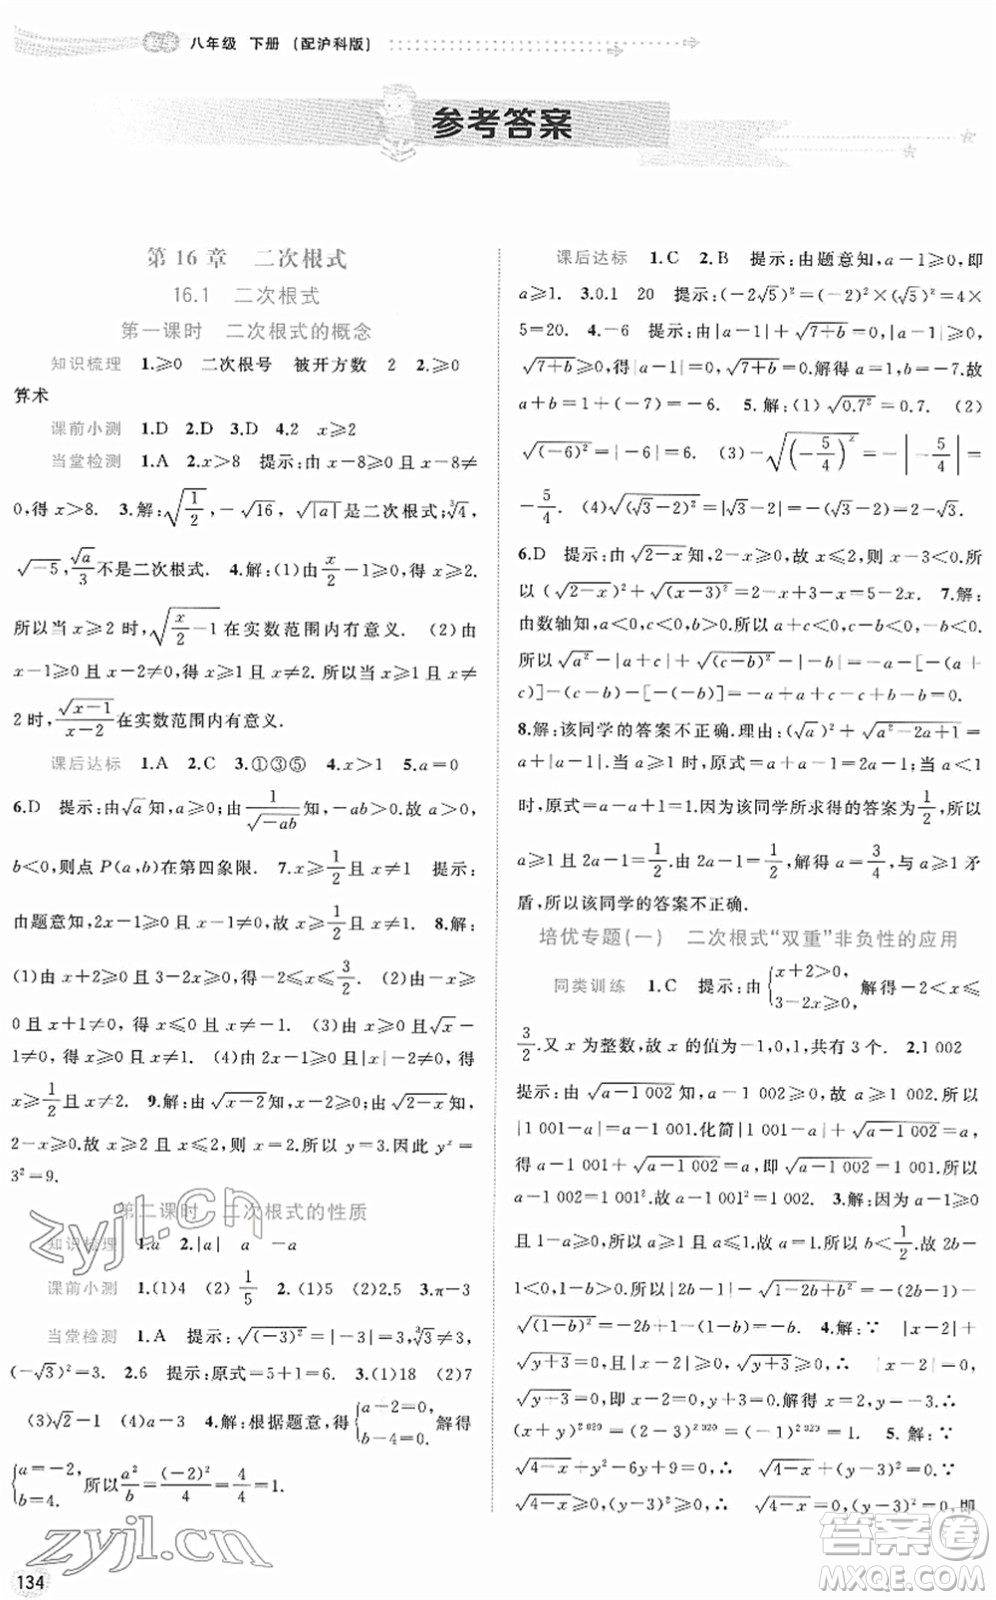 八年级 下册 (配沪科版)
参考答案
第 16 章 二次根式
16.1 二次根式
第一课时 二次根式的概念
知识梳理 1.≥0 二次根号 被开方数 2 2.≥0
算术
课前小测 1.D 2.D 3.D 4.2 x≥2
当堂检测 1.A 2.x>8 提示:由 x-8≥0 且 x-8≠
0,得 x>8. 3.解:√(1/2),-√16,√|a|是二次根式;∛4,
√-5,√a/3 不是二次根式. 4.解:(1)由 x/2-1≥0,得 x≥2.
所以当 x≥2 时,√(x/2-1)在实数范围内有意义. (2)由
x-1≥0 且 x-2≠0,得 x≥1 且 x≠2.所以当 x≥1 且 x≠
2 时,√(x-1)/(x-2)在实数范围内有意义.
课后达标 1.A 2.C 3.①③⑤ 4.x>1 5.a=0
6.D 提示:由√a知,a≥0;由1/√(-ab)知,-ab>0,故 a>0,
b<0,则点 P(a,b)在第四象限. 7.x≥1/2且 x≠1 提示:
由题意知,2x-1≥0 且 x-1≠0,故 x≥1/2且 x≠1. 8.解:
(1)由 x+2≥0 且 3-2x≥0,得-2≤x≤3/2. (2)由-x≥
0 且 x+1≠0,得 x≤0 且 x≠-1. (3)由 x≥0 且√x-1≠
0,得 x≥0 且 x≠1. (4)由 2x-1≥0 且|x|-2≠0,得
x≥1/2且 x≠2. 9.解:由√(x-2)知,x-2≥0.由√(2-x)知,
2-x≥0.故 x≥2 且 x≤2,则 x=2.所以 y=3.因此 yˣ=
3²=9.
第二课时 二次根式的性质
知识梳理 1.a 2.|a| a -a
课前小测 1.(1)4 (2) 1/5 2.(1)5 (2)2.5 3.π-3
当堂检测 1.A 提示:√(-3)²=|-3|=3,∛3≠3,
(-√3)²=3. 2.6 提示:原式=5+1=6. 3.(1)18 (2)7
(3)√2-1 (4)a-3 4.解:根据题意,得{a+2=0, b-4=0. 解得
{a=-2, b=4. 所以a²/b=(-2)²/4=4/4=1.
134
课后达标 1.C 2.B 提示:由题意知,a-1≥0,即
a≥1. 3.0.1 20 提示:(-2√5)²=(-2)²×(√5)²=4×
5=20. 4.-6 提示:由|a-1|+√(7+b)=0,|a-1|≥0,
√(7+b)≥0,得|a-1|=0,√(7+b)=0.解得 a=1,b=-7.故
a+b=1+(-7)=-6. 5.解:(1)√0.7²=0.7. (2)
√(-6)²=|-6|=6. (3)-√(-5/4)²=-|-5/4|=
-5/4. (4)√(√3-2)²=|√3-2|=-(√3-2)=2-√3.
6.D 提示:由√(2-x)知,2-x≥0,故 x≤2,则 x-3<0.所
以(√(2-x))²+√(x-3)²=2-x+3-x=5-2x. 7.解:
由数轴知,a<0,c<0,b>0.故 a+c<0,c-b<0.
所以√a²-|a+c|+√(c-b)²-|-b|=-a-[-(a+
c)]-(c-b)-[-(-b)]=-a+a+c-c+b-b=0.
8.解:该同学的答案不正确.理由:(√a)²+√(a²-2a+1)=
a+|a-1|,当 a≥1 时,原式=a+a-1=2a-1;当 0≤a<1
时,原式=a-a+1=1.因为该同学所求得的答案为1/2,所以
a≥1 且 2a-1=1/2.故由 2a-1=1/2,解得 a=3/4,与 a≥1 矛
盾,所以该同学的答案不正确.
培优专题(一) 二次根式“双重”非负性的应用
同类训练 1.C 提示:由{x+2>0, 3-2x≥0, 解得-2<x≤
3/2.又 x 为整数,故 x 的值为-1,0,1,共有 3 个. 2.1 002
提示:由√(a-1 002)知,a-1 002≥0,故 a≥1 002.所以
|1 001-a|=a-1 001.化简|1 001-a|+√(a-1 002)=a,
得 a-1 001+√(a-1 002)=a,即√(a-1 002)=1 001.
所以 a-1 002=1 001².故 a-1 001²=1 002. 3.解:因为 a-1≥0
且1-a≥0,所以a≥1且a≤1,则 a=1.所以 b<1/2.故2b-
1<0,b-1<0.所以|2b-1|-√(1-2b+b²)=1-2b-
√(1-b)²=1-2b-(1-b)=-b. 4.解:∵ |x-2|≥0,
√(y+3)≥0,且|x-2|+√(y+3)=0,∴ |x-2|=0,
√(y+3)=0,即 x-2=0,y+3=0.∴ x=2,y=-3.∴
(x+y)²⁰²⁰=(2-3)²⁰²⁰=(-1)²⁰²⁰=1. 5.解:∵
√(4-x)+y²-6y+9=0,∴ √(4-x)+(y-3)²=0.∵
√(4-x)≥0,(y-3)²≥0,∴ √(4-x)=0,(y-3)²=0,即
zyjl.cn
zyjl.cn
答案圈
MXQE.COM